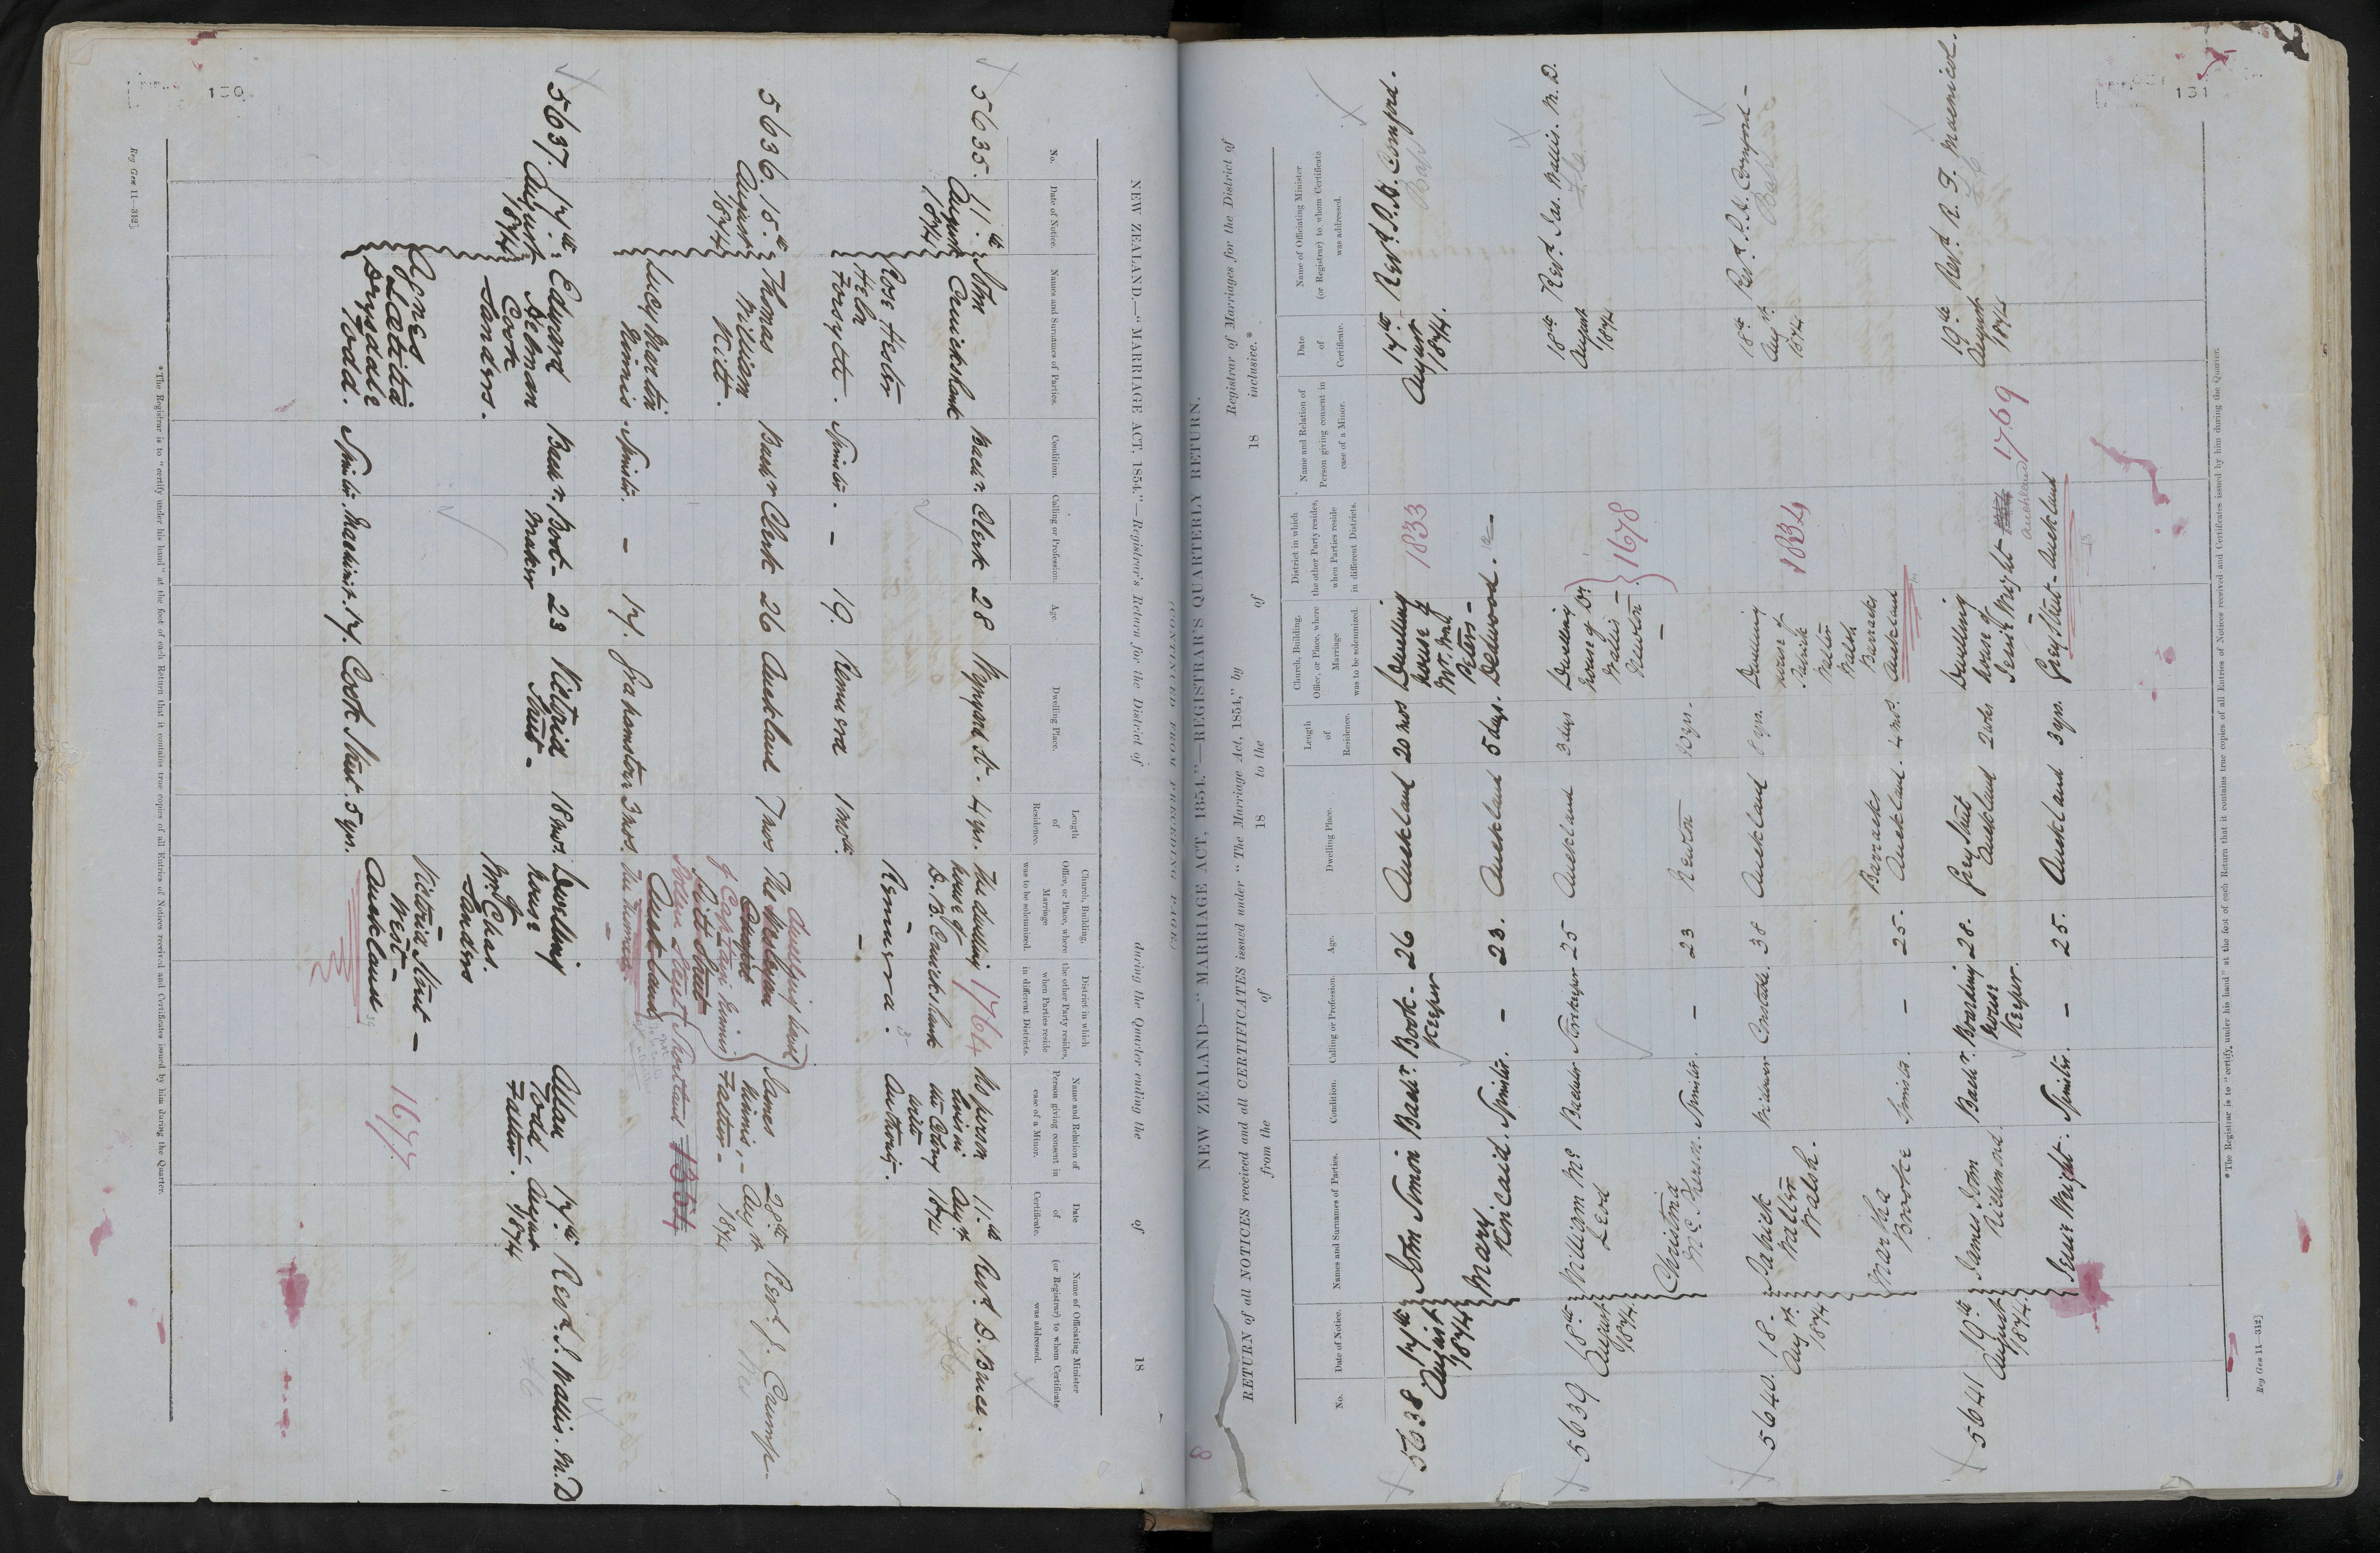 130
NEW ZEALAND.—"MARRIAGE ACT, 1854."—Registrar's Return for the District of during the Quarter ending the of 18
No.
Date of Notice.
Names and Surnames of Parties.
Condition.
Calling or Profession.
Age.
Dwelling Place.
Length
of
Residence.
Church, Building,
Office, or Place, where
Marriage
was to be solemnized.
District in which
the other Party resides,
when Parties reside
in different Districts.
Name and Relation of
Person giving consent in
case of a Minor.
Date
of
Certificate.
Name of Officiating Minister
(or Registrar) to whom Certificate
was addressed.
5635.
11th
August
1874
John
Cruickshank
Bachr.
Clerk
28
Wynyard St.
4 yrs.
The dwelling
house of
D. B. Cruickshank
Remuera.
1764
No person
living in
the Colony
with
Authority.
11th
Augst
1874
Revd. D. Bruce.
Rose Hester
Heba
Forsyth.
Spinster.
–
19.
Remuera
1 mth.
5636.
15th
August
1874
Thomas
William
Kitt.
Bachr
Clerk
26
Auckland
7 mos
The Wesleyan
Church
Pitt Street
Auckland
Dwelling house
of Captain Nimmo
James
Nimmo,–
Father–
28th
Augst
1874
Revd. J. Crump.
Lucy Martin
Nimmo.
Spinster.
–
17.
Grahamstown
3 mos.
5637.
17th
August
1874
Edward
Selman
Cook
Sanders.
Bachr.
Boot-
maker
23
Victoria
Street–
18 mos.
Dwelling
house
of
Mr. Chas.
Sanders
Victoria Street–
West–
Auckland
Alan
Todd,
Father.
17th
August
1874
Revd. J. Wallis. M.D
Agnes
Laetitia
Drysdale
Todd.
Spinster.
Machinist.
17.
Cook Street.
5 yrs.
1677
* The Registrar is to "certify under his hand" at the foot of each Return that it contains true copies of all Entries of Notices received and Certificates issued by him during the Quarter.
Reg Gen 11—312]
131
8
NEW ZEALAND—"MARRIAGE ACT, 1854."—REGISTRAR'S QUARTERLY RETURN.
RETURN of all NOTICES received and all CERTIFICATES issued under "The Marriage Act, 1854," by Registrar of Marriages for the District of
from the of 18 to the of 18 inclusive.*
No.
Date of Notice.
Names and Surnames of Parties.
Condition.
Calling or Profession.
Age.
Dwelling Place.
Length
of
Residence.
Church, Building,
Office, or Place, where
Marriage
was to be solemnized.
District in which
the other Party resides,
when Parties reside
in different Districts.
Name and Relation of
Person giving consent in
case of a Minor.
Date
of
Certificate.
Name of Officiating Minister
(or Registrar) to whom Certificate
was addressed.
5638
17th
August
1874
John Simon
Bachr.
Book-
Keeper
26
Auckland
20 mos
Dwelling
house of
Peters–
1833
17th
August
1874.
Mary
Kincaid.
Spinster.
–
23.
Auckland
5 days.
5639
18th
August
1874.
William Mc
Leod
Bachelor
Storekeeper
25
Auckland
3 days
Dwelling
house of Dr
Wallis–
Newton–
1678
18th
August
1874
Revd. Jas. Wallis. M.D.
Christina
McPherson.
Spinster.
–
23
Newton
10 yrs.
5640.
18.
Augst.
1874
Patrick
Walter
Walsh.
Widower
Constable.
38
Auckland
8 yrs.
Dwelling
house of
Patrick
Walter
Walsh
Barracks
Auckland
1834
18th
Augst.
1874
Martha
Brooke
Spinster.
–
25.
Barracks
Auckland.
4 mos.
5641
19th
August
1874.
James John
Bachr.
Boarding
house
Keeper.
28.
Grey Street
Auckland
2 wks
Dwelling
house of
Grey Street–Auckland
Auckland
1769
19th
August
1874
Revd. R. F. Macnicol.
Spinster.
–
25.
Auckland
3 yrs.
* The Registrar is to "certify, under his hand" at the foot of each Return that it contains true copies of all Entries of Notices received and Certificates issued by him during the Quarter.
Reg Gen 11—312]